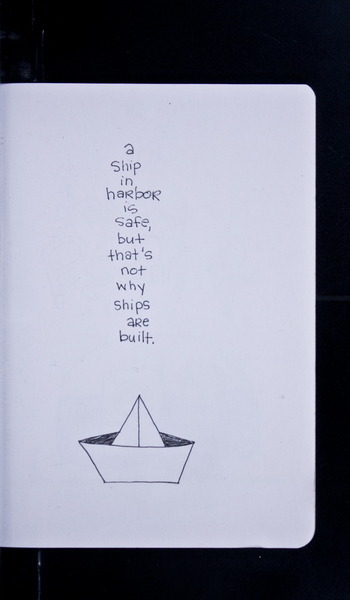 a
ship
in
harbor
is
safe,
but
that's
not
why
ships
are
built.